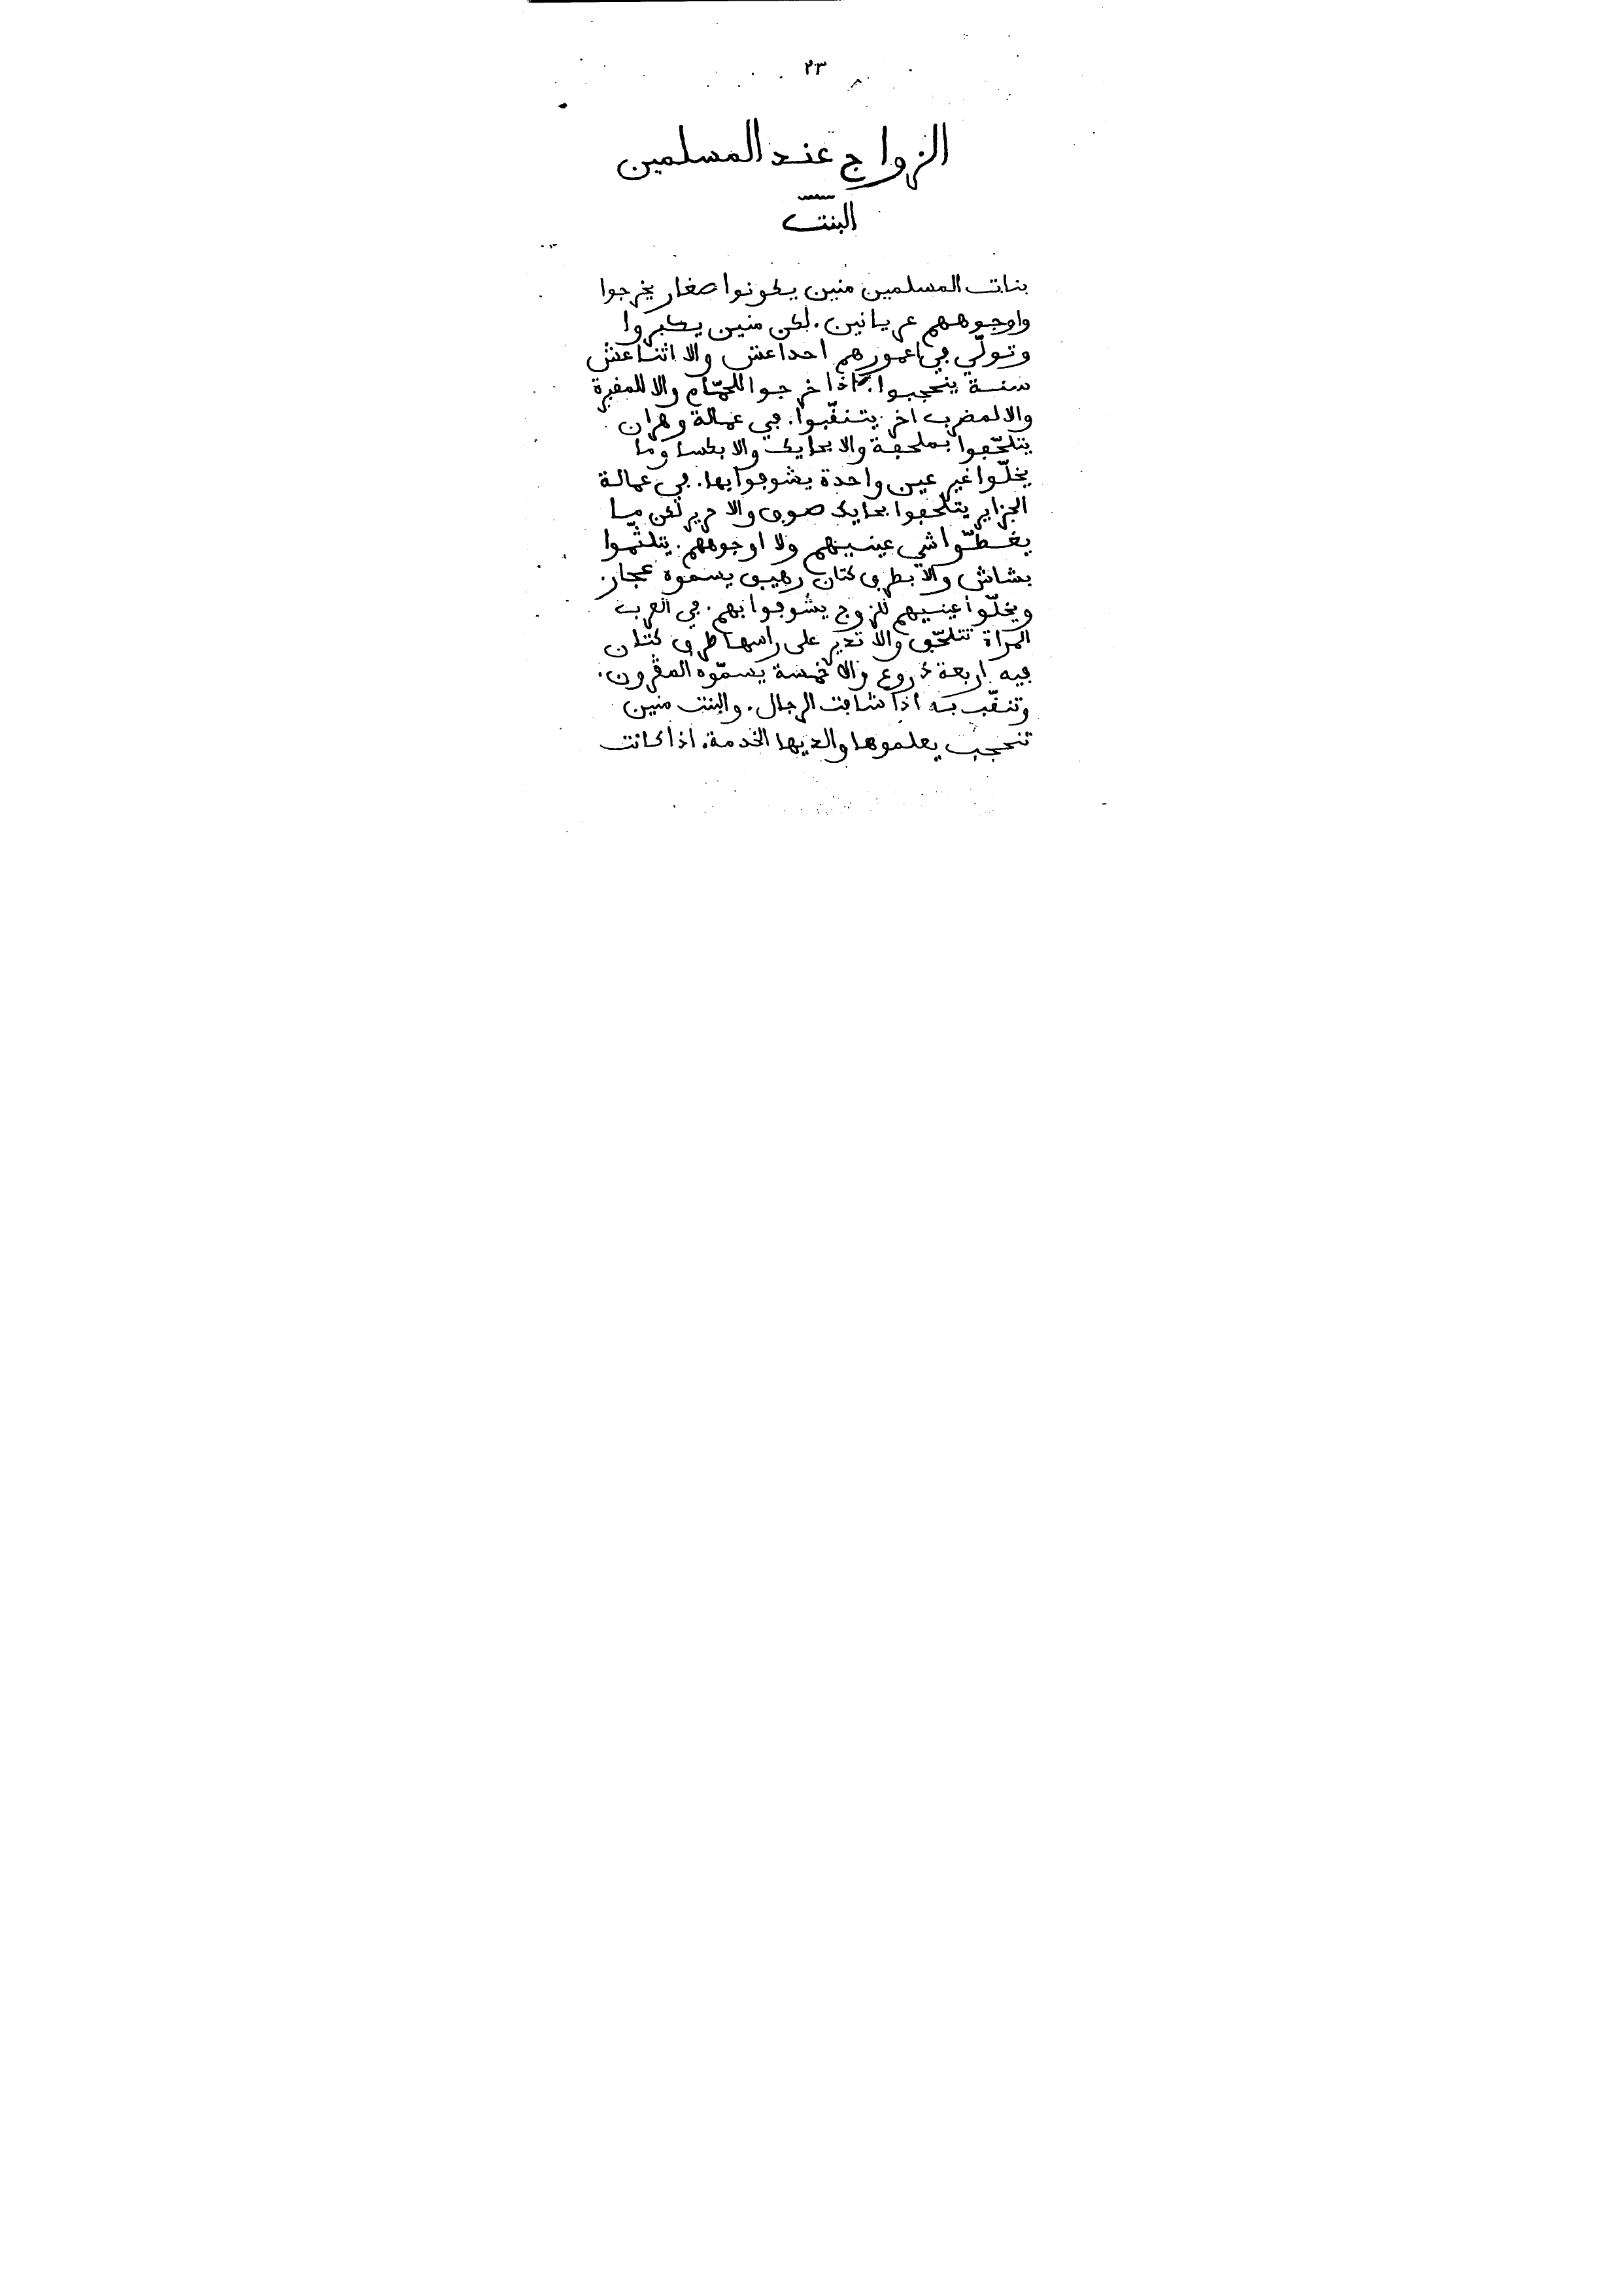 ٢٣
الزواج عند المسلمين
البنت
بنات المسلمين منين يكونوا صغار يخرجوا
واوجوههم عريانين. لكن منين يكبروا
وتولّي في اعمورهم احداعش والا اثناعش
سنة ينحجبوا. اذا خرجوا للحمّام والا للمقبرة
والا لمضرب اخر يتنقّبوا. في عمالة وهران
يتلحّفوا بملحفة والا بحايك والا بكسا وما
يخلّوا غير عين واحدة يشوفوا بها. في عمالة
الجزاير يتلحّفوا بحايك صوف والا حرير لكن ما
يغطّوا شي عينيهم ولا اوجوههم. يتلثّموا
بشاش والا بطرف كتان رهيف يسموه عجار.
ويخلّوا عينيهم للزوج يشوفوا بهم. في العرب
المراة تتلحّف والا تدير على راسها طرف كتان
فيه اربعة ذروع والا خمسة يسمّوه المقرون.
وتنقّب به اذا شافت الرجال. والبنت منين
تنحجب يعلموها والديها الخدمة. اذا كانت